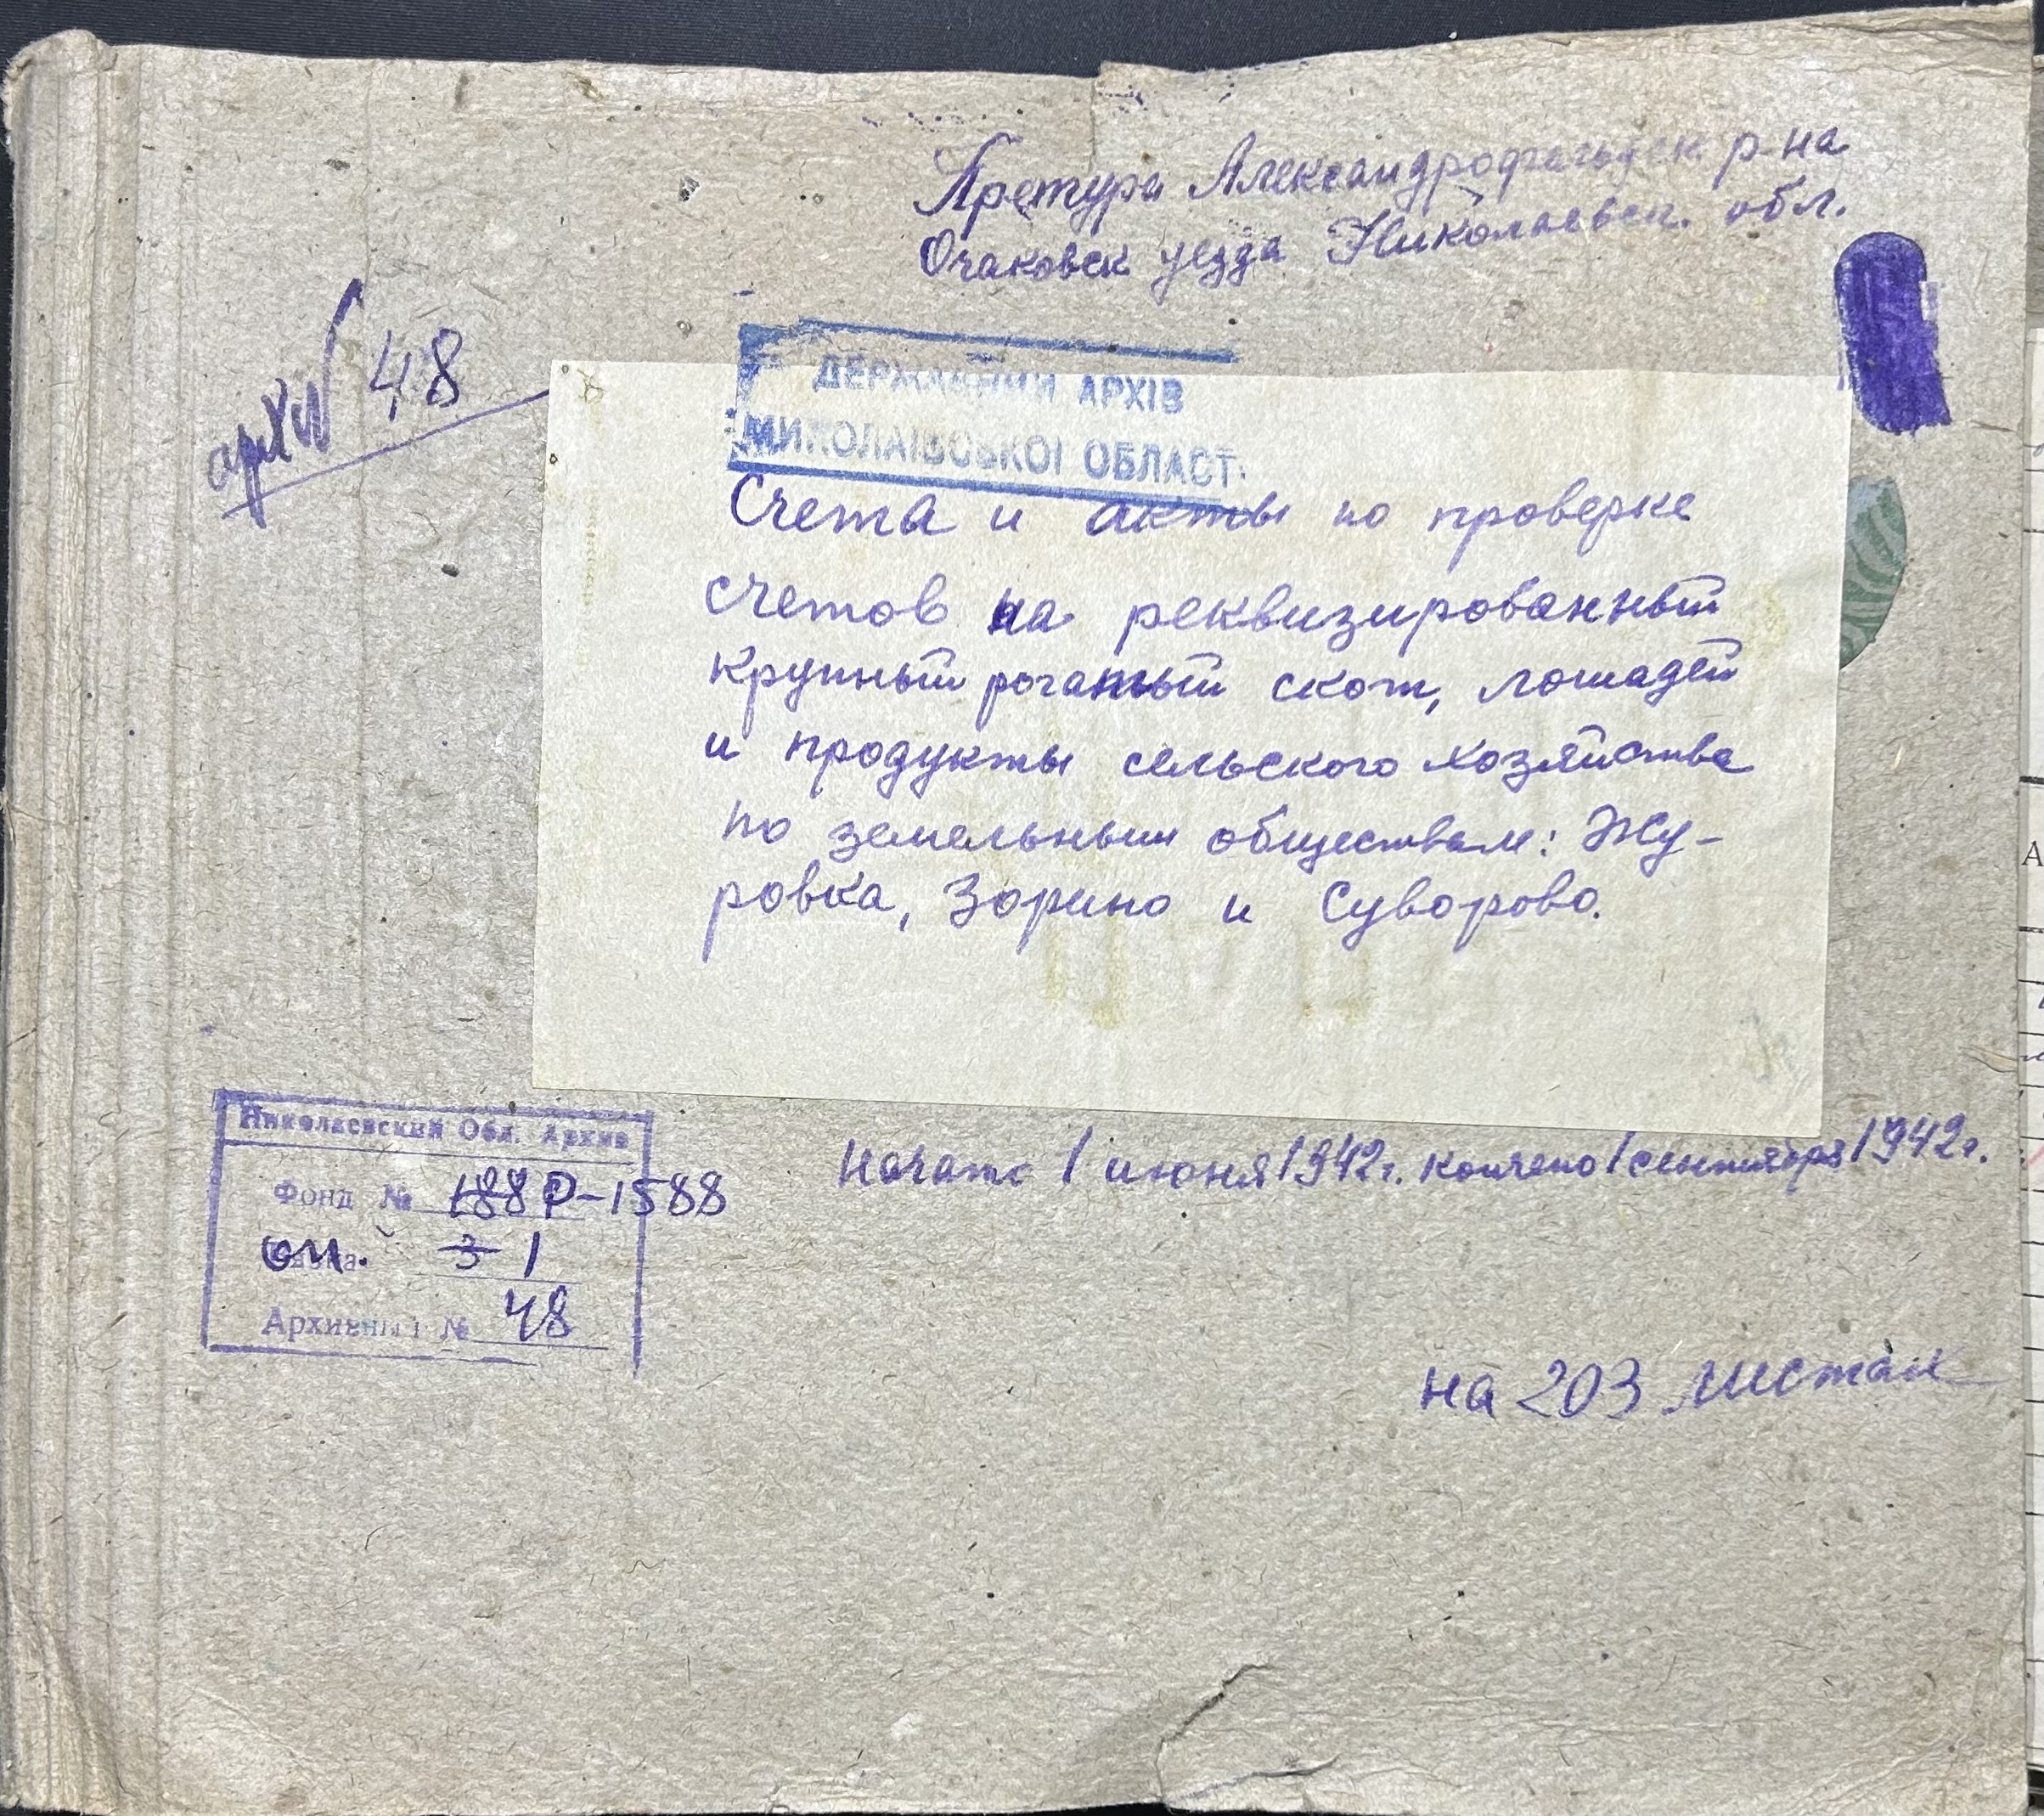 Претура Александрофельдск р-на
Очаковск уезда Николаевск. обл.
арх № 48
ДЕРЖАВНИЙ АРХІВ
МИКОЛАЇВСЬКОЇ ОБЛАСТ.
Счета и акты по проверке
счетов на реквизированный
крупный рогатый скот, лошадей
и продукты сельского хозяйства
по земельным обществам: Жу-
ровка, Зорино и Суворово.
Николаевский Обл. Архив
Фонд № 188 Р-1588
оп. 3 1
Архивный № 48
Начато 1 июня 1942г. кончено 1 сентября 1942г.
на 203 листах